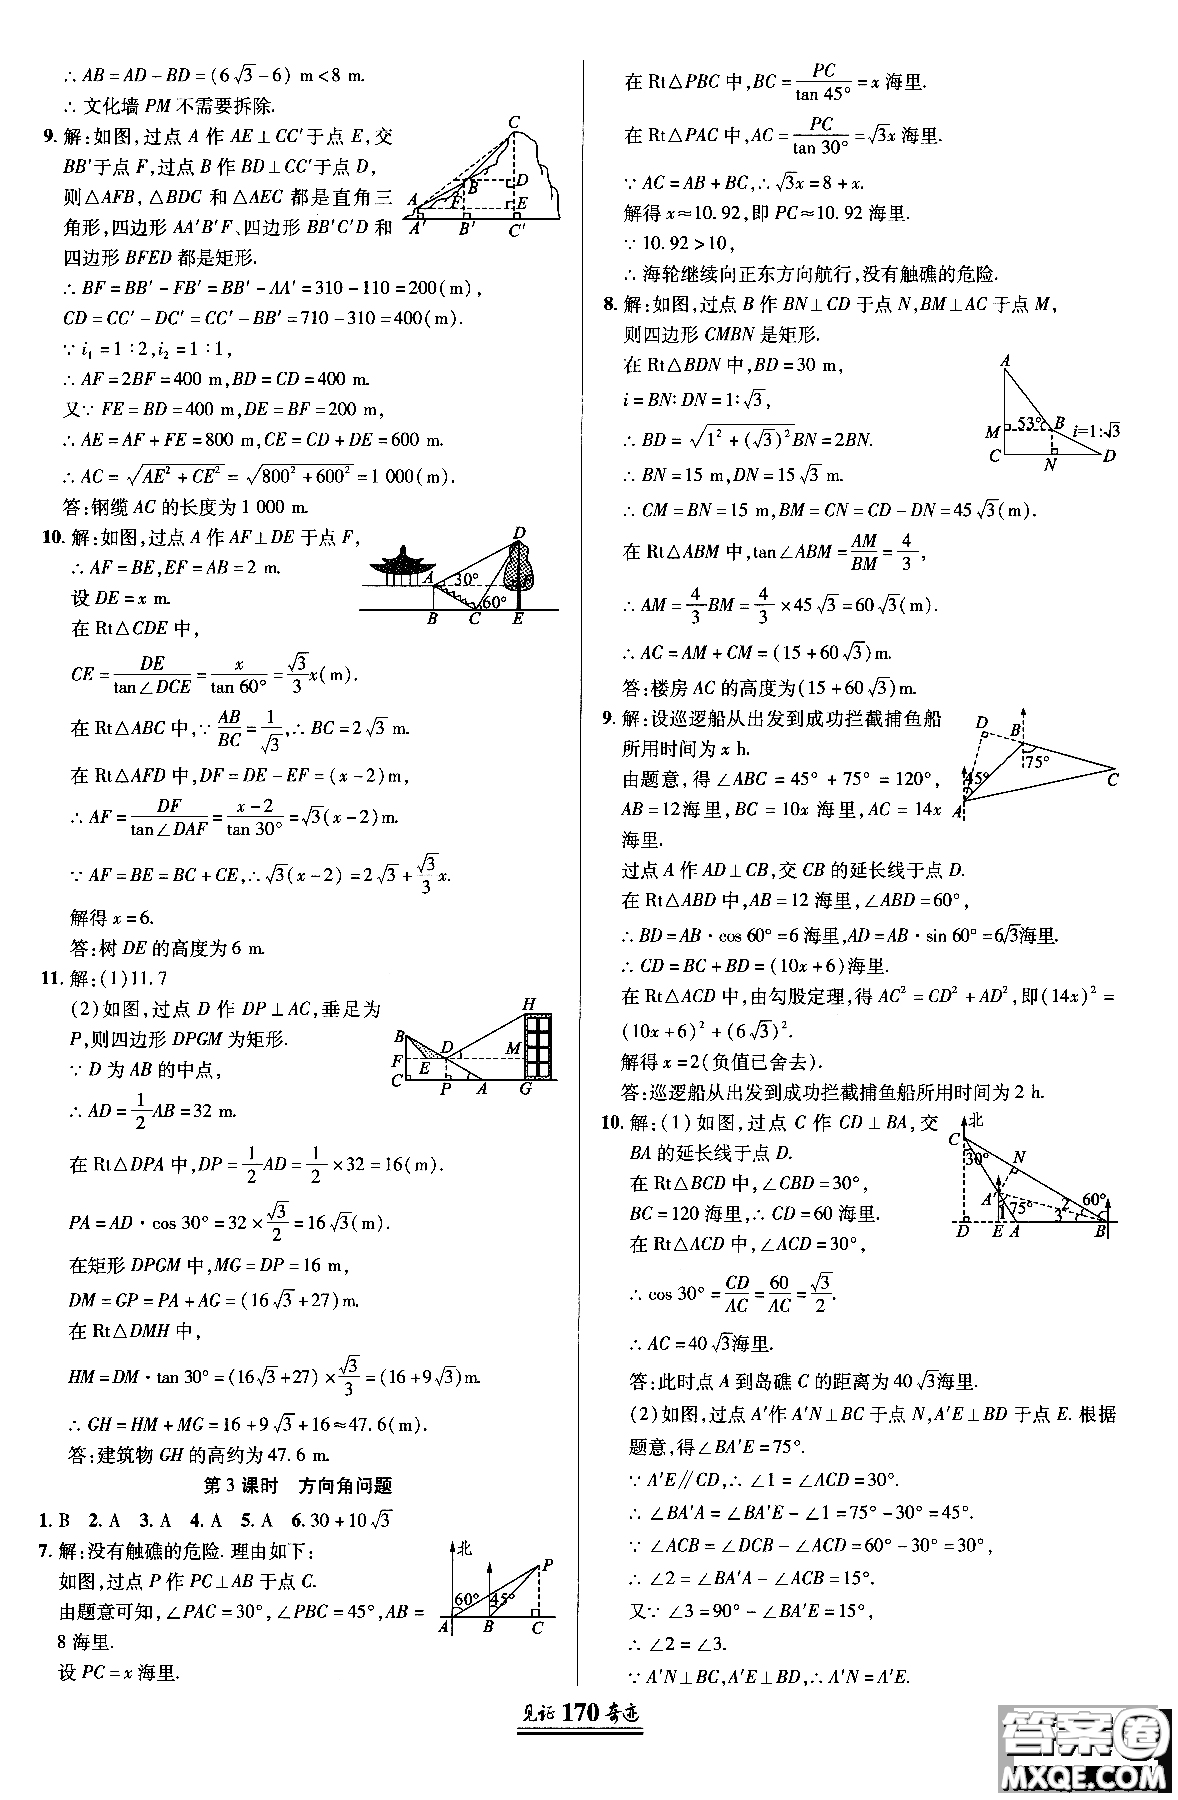 ∴AB=AD-BD=(6√3-6) m<8 m.
∴文化墙 PM 不需要拆除.
9. 解:如图,过点 A 作 AE⊥CC′于点 E,交
BB′于点 F,过点 B 作 BD⊥CC′于点 D,
则△AFB,△BDC 和△AEC 都是直角三
角形,四边形 AA′B′F、四边形 BB′C′D 和
四边形 BFED 都是矩形.
C
B D
A F E
A′ B′ C′
∴BF=BB′-FB′=BB′-AA′=310-110=200(m),
CD=CC′-DC′=CC′-BB′=710-310=400(m).
∵i₁=1∶2,i₂=1∶1,
∴AF=2BF=400 m,BD=CD=400 m.
又∵FE=BD=400 m,DE=BF=200 m,
∴AE=AF+FE=800 m,CE=CD+DE=600 m.
∴AC=√(AE²+CE²)=√(800²+600²)=1 000(m).
答:钢缆 AC 的长度为 1 000 m.
10. 解:如图,过点 A 作 AF⊥DE 于点 F,
∴AF=BE,EF=AB=2 m.
设 DE=x m.
在 Rt△CDE 中,
D
A 30° F
60°
B C E
CE=DE/tan∠DCE=x/tan 60°=√3/3 x(m).
在 Rt△ABC 中,∵AB/BC=1/√3,∴BC=2√3 m.
在 Rt△AFD 中,DF=DE-EF=(x-2)m,
∴AF=DF/tan∠DAF=(x-2)/tan 30°=√3(x-2)m.
∵AF=BE=BC+CE,∴√3(x-2)=2√3+√3/3 x.
解得 x=6.
答:树 DE 的高度为 6 m.
11. 解:(1)11.7
(2)如图,过点 D 作 DP⊥AC,垂足为
P,则四边形 DPGM 为矩形.
∵D 为 AB 的中点,
∴AD=1/2 AB=32 m.
H
B D
F E M
C P A G
在 Rt△DPA 中,DP=1/2 AD=1/2×32=16(m).
PA=AD·cos 30°=32×√3/2=16√3(m).
在矩形 DPGM 中,MG=DP=16 m,
DM=GP=PA+AG=(16√3+27)m.
在 Rt△DMH 中,
HM=DM·tan 30°=(16√3+27)×√3/3=(16+9√3)m.
∴GH=HM+MG=16+9√3+16≈47.6(m).
答:建筑物 GH 的高约为 47.6 m.
第 3 课时 方向角问题
1. B 2. A 3. A 4. A 5. A 6. 30+10√3
7. 解:没有触礁的危险. 理由如下:
如图,过点 P 作 PC⊥AB 于点 C.
由题意可知,∠PAC=30°,∠PBC=45°,AB=
8 海里.
设 PC=x 海里.
北
P
60° 45°
A B C
在 Rt△PBC 中,BC=PC/tan 45°=x 海里.
在 Rt△PAC 中,AC=PC/tan 30°=√3x 海里.
∵AC=AB+BC,∴√3x=8+x.
解得 x≈10.92,即 PC≈10.92 海里.
∵10.92>10,
∴海轮继续向正东方向航行,没有触礁的危险.
8. 解:如图,过点 B 作 BN⊥CD 于点 N,BM⊥AC 于点 M,
则四边形 CMBN 是矩形.
在 Rt△BDN 中,BD=30 m,
i=BN∶DN=1∶√3,
∴BD=√(1²+(√3)²)BN=2BN.
∴BN=15 m,DN=15√3 m.
A
M 53° B i=1:√3
C N D
∴CM=BN=15 m,BM=CN=CD-DN=45√3(m).
在 Rt△ABM 中,tan∠ABM=AM/BM=4/3,
∴AM=4/3 BM=4/3×45√3=60√3(m).
∴AC=AM+CM=(15+60√3)m.
答:楼房 AC 的高度为(15+60√3)m.
9. 解:设巡逻船从出发到成功拦截捕鱼船
所用时间为 x h.
由题意,得∠ABC=45°+75°=120°,
AB=12海里,BC=10x 海里,AC=14x
海里.
D B
75°
45° C
A
过点 A 作 AD⊥CB,交 CB 的延长线于点 D.
在 Rt△ABD 中,AB=12 海里,∠ABD=60°,
∴BD=AB·cos 60°=6 海里,AD=AB·sin 60°=6√3海里.
∴CD=BC+BD=(10x+6)海里.
在 Rt△ACD 中,由勾股定理,得 AC²=CD²+AD²,即(14x)²=
(10x+6)²+(6√3)².
解得 x=2(负值已舍去).
答:巡逻船从出发到成功拦截捕鱼船所用时间为 2 h.
10. 解:(1)如图,过点 C 作 CD⊥BA,交
BA 的延长线于点 D.
在 Rt△BCD 中,∠CBD=30°,
BC=120 海里,∴CD=60 海里.
在 Rt△ACD 中,∠ACD=30°,
北
C
30° N
A′ 60°
1 75° 2
3
D E A B
∴cos 30°=CD/AC=60/AC=√3/2.
∴AC=40√3海里.
答:此时点 A 到岛礁 C 的距离为 40√3海里.
(2)如图,过点 A′作 A′N⊥BC 于点 N,A′E⊥BD 于点 E. 根据
题意,得∠BA′E=75°.
∵A′E∥CD,∴∠1=∠ACD=30°.
∴∠BA′A=∠BA′E-∠1=75°-30°=45°.
∵∠ACB=∠DCB-∠ACD=60°-30°=30°,
∴∠2=∠BA′A-∠ACB=15°.
又∵∠3=90°-∠BA′E=15°,
∴∠2=∠3.
∵A′N⊥BC,A′E⊥BD,∴A′N=A′E.
见证 170 奇迹
答案圈
MXQE.COM